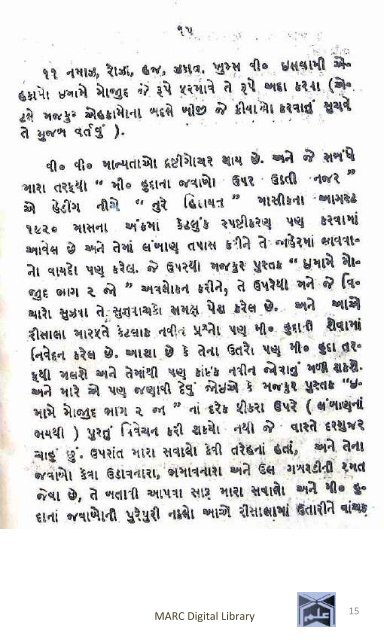 ૧૫
૧૧ નમાઝ, રોઝા, હજ, ઝકાત, ખુમ્સ વી૦ ઇસ્લામી એ-
હકામો ઇમામે મૌજુદ જે રૂપે ફરમાવે તે રૂપે અદા કરવા (એ-
ટલે મજકુર એહકામોના બદલે બીજી જે ક્રીયાઓ કરવાનું સુચવે
તે મુજબ વર્તવું ).
વી૦ વી૦ માન્યતાઓ દ્રષ્ટીગોચર થાય છે. અને જે સબંધે
મારા તરફથી “ મી૦ કુદાના જવાબો ઉપર ઉડતી નજર ”
એ હેડીંગ નીચે “ નુરે હિદાયત ” માસીકના આગસ્ટ
૧૯૨૦ માસના અંકમાં કેટલુંક સ્પષ્ટીકરણ પણ કરવામાં
આવેલ છે અને તેમાં લંબાણ તપાસ કરીને તે જાહેરમાં લાવવા-
નો વાયદો પણ કરેલ. જે ઉપરથી મજકુર પુસ્તક “ ઇમામે મૌ-
જુદ ભાગ ૨ જો ” અવલોકન કરીને, તે ઉપરથી મને જે વિ-
ચારો સુઝ્યા તે સુજ્ઞવાચકો સમક્ષ પેશ કરેલ છે. અને આએ
રીસાલા મારફતે કેટલાક નવીન પ્રશ્નો પણ મી૦ કુદાની સેવામાં
નિવેદન કરેલ છે. આશા છે કે તેના ઉતરો પણ મી૦ કુદા તર-
ફથી મળશે અને તેમાંથી પણ કાંઇક નવીન જોવાનું મળી શકશે.
અને મારે એ પણ જણાવી દેવું જોઇએ કે મજકુર પુસ્તક “ઇ-
મામે મૌજુદ ભાગ ૨ જા ” નાં દરેક ફીકરા ઉપરે ( લંબાણના
ભયથી ) પુરતું વિવેચન કરી શક્યો નથી જે વાસ્તે દરગુજર
ચાહું છું. ઉપરાંત મારા સવાલો કેવી તરેહનાં હતાં, અને તેના
જવાબો કેવા ઉડાવનારા, ભમાવનારા અને ઉલ ગપરડીની રમત
જેવા છે, તે બતાવી આપવા સારૂ મારા સવાલો અને મી૦ કુ-
દાનાં જવાબોની પુરેપુરી નકલો આએ રીસાલામાં ઉતારીને વાંચક
MARC Digital Library
15